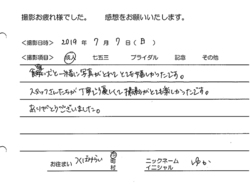 撮影お疲れ様でした。　感想をお願いいたします。
<撮影日時>　2019年 7月 7日(日)
<撮影項目>　成人　七五三　ブライダル　記念　その他
一緒に写真がとれてとても嬉しかったです。
スタッフさんたちが丁寧で優しくて撮影がとても楽しかったです。
ありがとうございました。
お住まい　つくばみらい　市　町　村
ニックネーム
イニシャル　ゆか